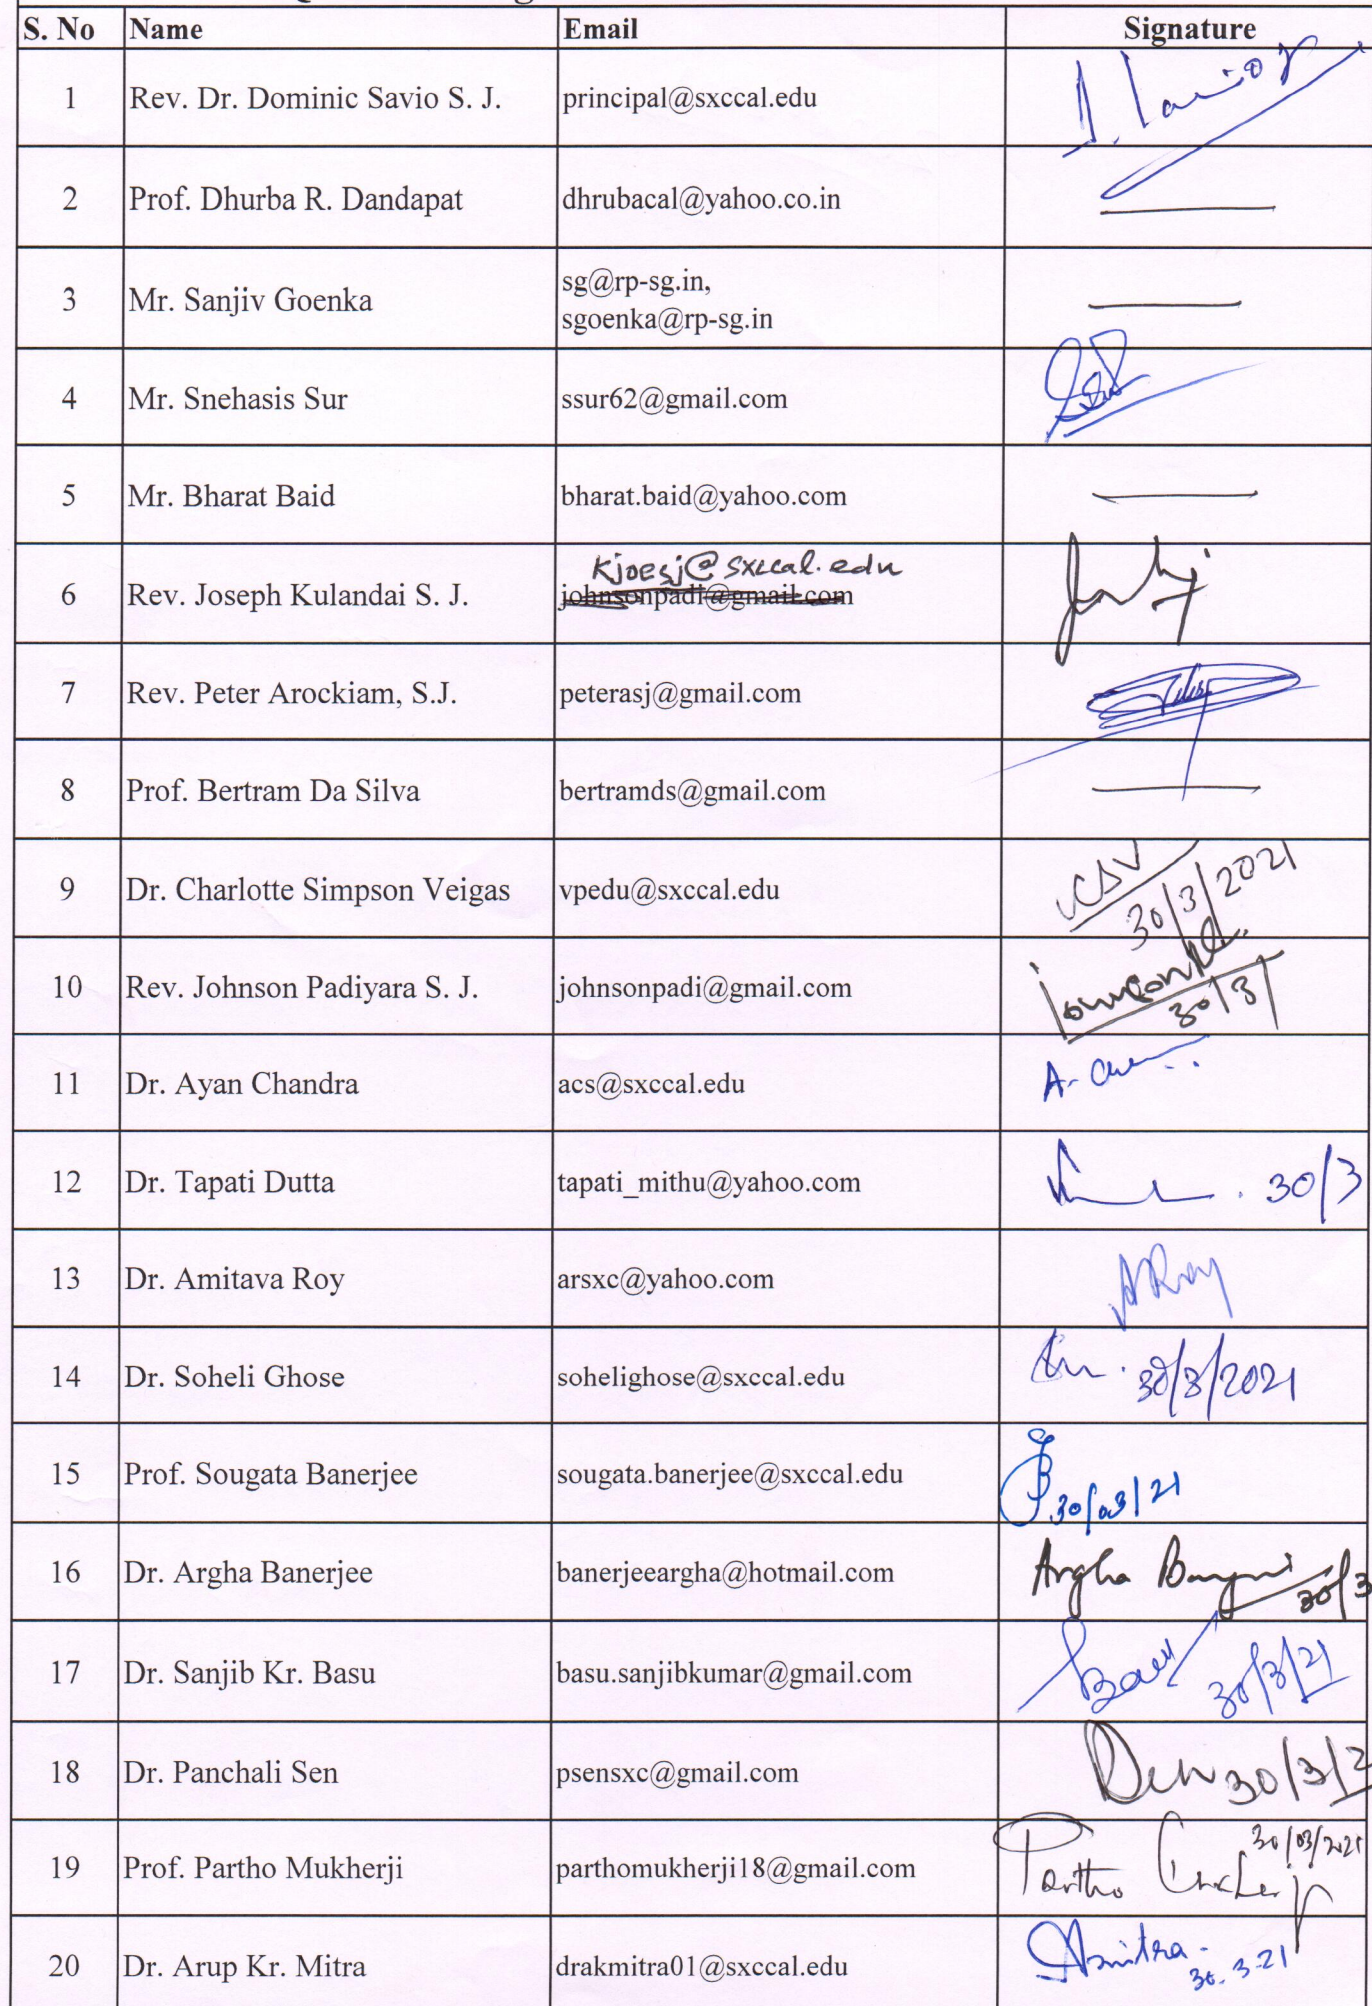 S. No Name Email Signature
1 Rev. Dr. Dominic Savio S. J. principal@sxccal.edu
2 Prof. Dhurba R. Dandapat dhrubacal@yahoo.co.in
3 Mr. Sanjiv Goenka sg@rp-sg.in,
sgoenka@rp-sg.in
4 Mr. Snehasis Sur ssur62@gmail.com
5 Mr. Bharat Baid bharat.baid@yahoo.com
kjoesj@sxccal.edu
6 Rev. Joseph Kulandai S. J. johnsonpadi@gmail.com
7 Rev. Peter Arockiam, S.J. peterasj@gmail.com
8 Prof. Bertram Da Silva bertramds@gmail.com
9 Dr. Charlotte Simpson Veigas vpedu@sxccal.edu CSV
30/3/2021
10 Rev. Johnson Padiyara S. J. johnsonpadi@gmail.com
30/3
11 Dr. Ayan Chandra acs@sxccal.edu
12 Dr. Tapati Dutta tapati_mithu@yahoo.com 30/3
13 Dr. Amitava Roy arsxc@yahoo.com ARoy
14 Dr. Soheli Ghose sohelighose@sxccal.edu 30/3/2021
15 Prof. Sougata Banerjee sougata.banerjee@sxccal.edu 30/03/21
16 Dr. Argha Banerjee banerjeeargha@hotmail.com Argha Banerjee 30/3
17 Dr. Sanjib Kr. Basu basu.sanjibkumar@gmail.com 30/3/21
18 Dr. Panchali Sen psensxc@gmail.com 30/3/2
19 Prof. Partho Mukherji parthomukherji18@gmail.com Partho Mukherji 30/03/2021
20 Dr. Arup Kr. Mitra drakmitra01@sxccal.edu Amitra
30.3.21